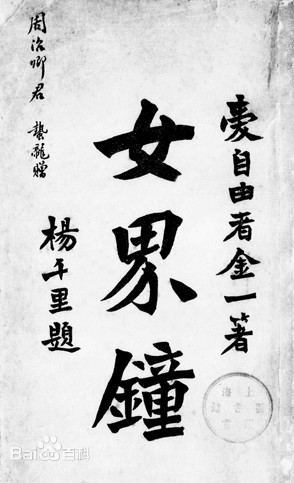 愛自由者金一著
女界鐘
楊千里題
周治卿君 蟄龍贈
上海
Bai百科